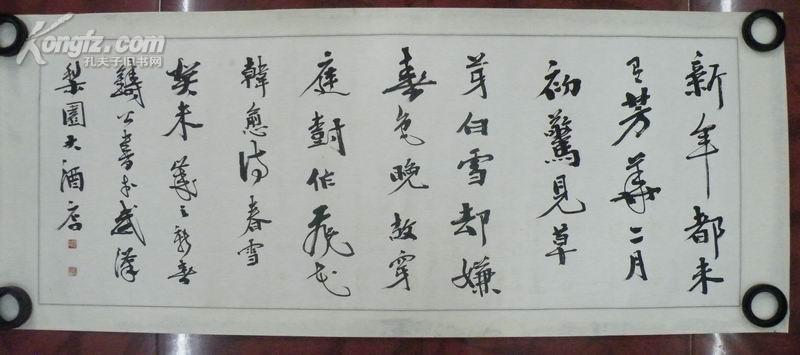 新年都未
有芳華二月
初驚見草
芽白雪却嫌
春色晚故穿
庭樹作飛花
韓愈詩春雪
癸未歲之新春
鑄公書於武漢
梨園大酒店
Kongfz.com
孔夫子旧书网